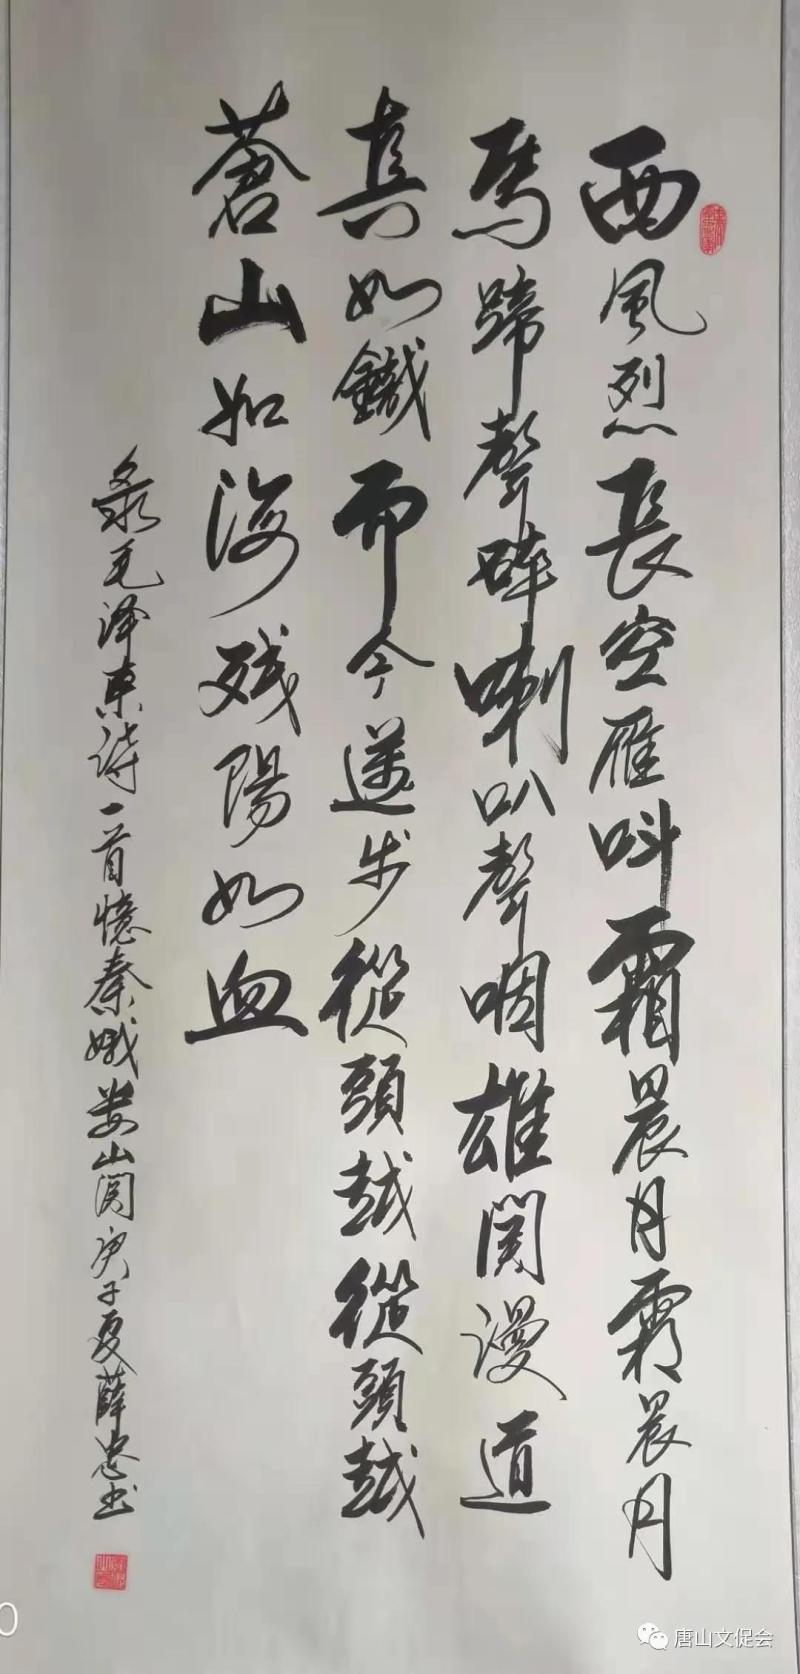 西風烈長空雁叫霜晨月霜晨月
馬蹄聲碎喇叭聲咽雄関漫道
真如鐵而今邁步從頭越從頭越
蒼山如海残陽如血
录毛泽東诗一首憶秦娥娄山関庚子夏薛忠书
唐山文促会